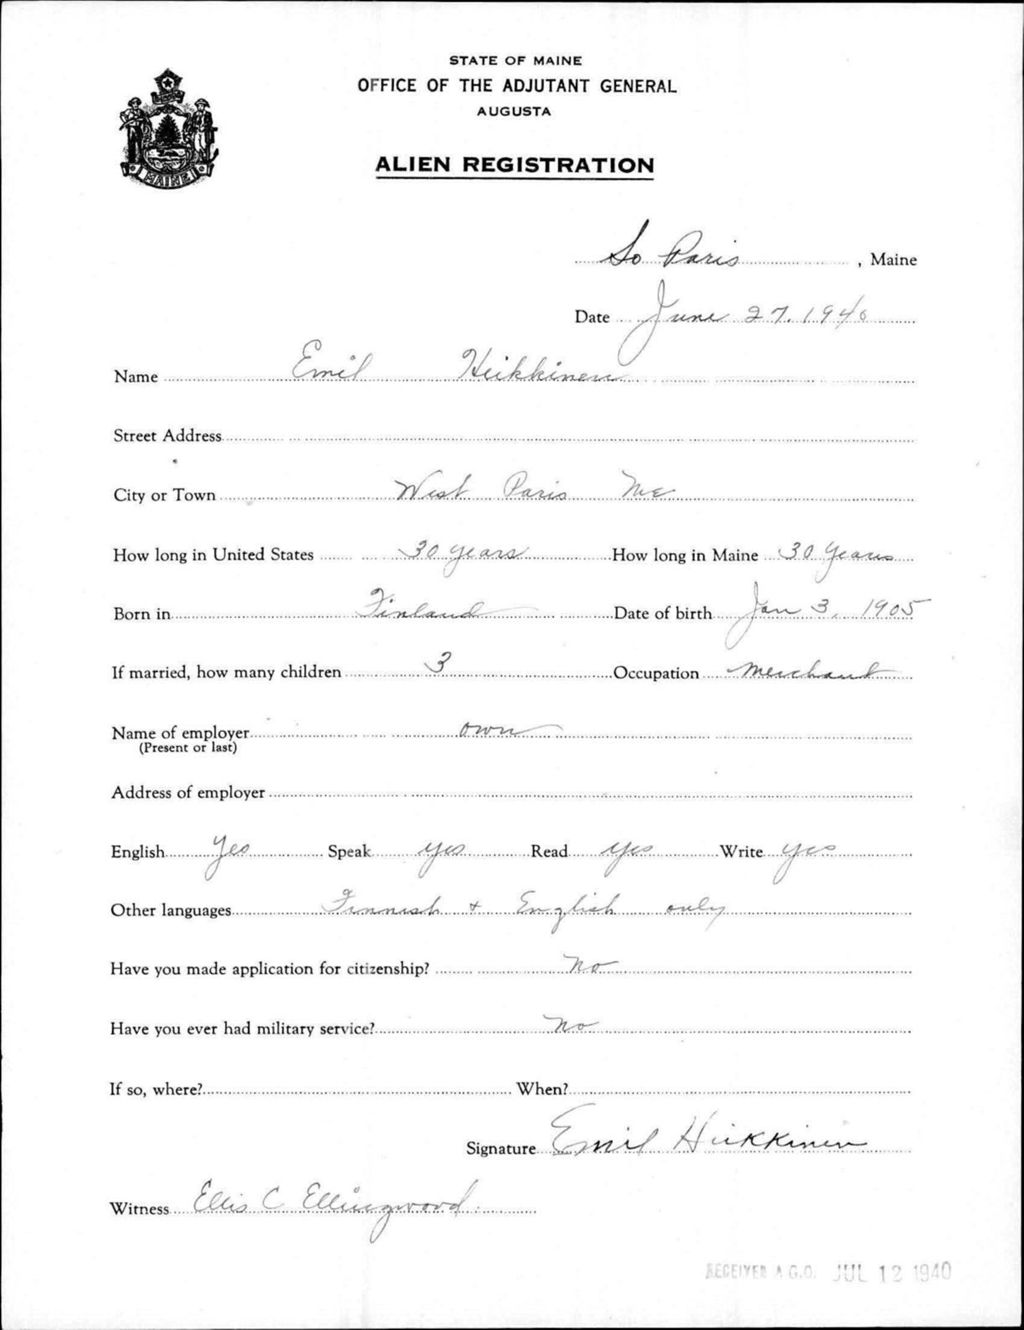 STATE OF MAINE
OFFICE OF THE ADJUTANT GENERAL
AUGUSTA
ALIEN REGISTRATION
MAINE
So Paris, Maine
Date June 27, 1940
Name Emil Heikkinen
Street Address
City or Town West Paris Me
How long in United States 30 years How long in Maine 30 years
Born in Finland Date of birth Jan 3, 1905
If married, how many children 3 Occupation Merchant
Name of employer own
(Present or last)
Address of employer
English Yes Speak yes Read yes Write yes
Other languages Finnish + English only
Have you made application for citizenship? No
Have you ever had military service? No
If so, where? When?
Signature Emil Heikkinen
Witness Ellis C Ellingwood
RECEIVED A.G.O. JUL 12 1940